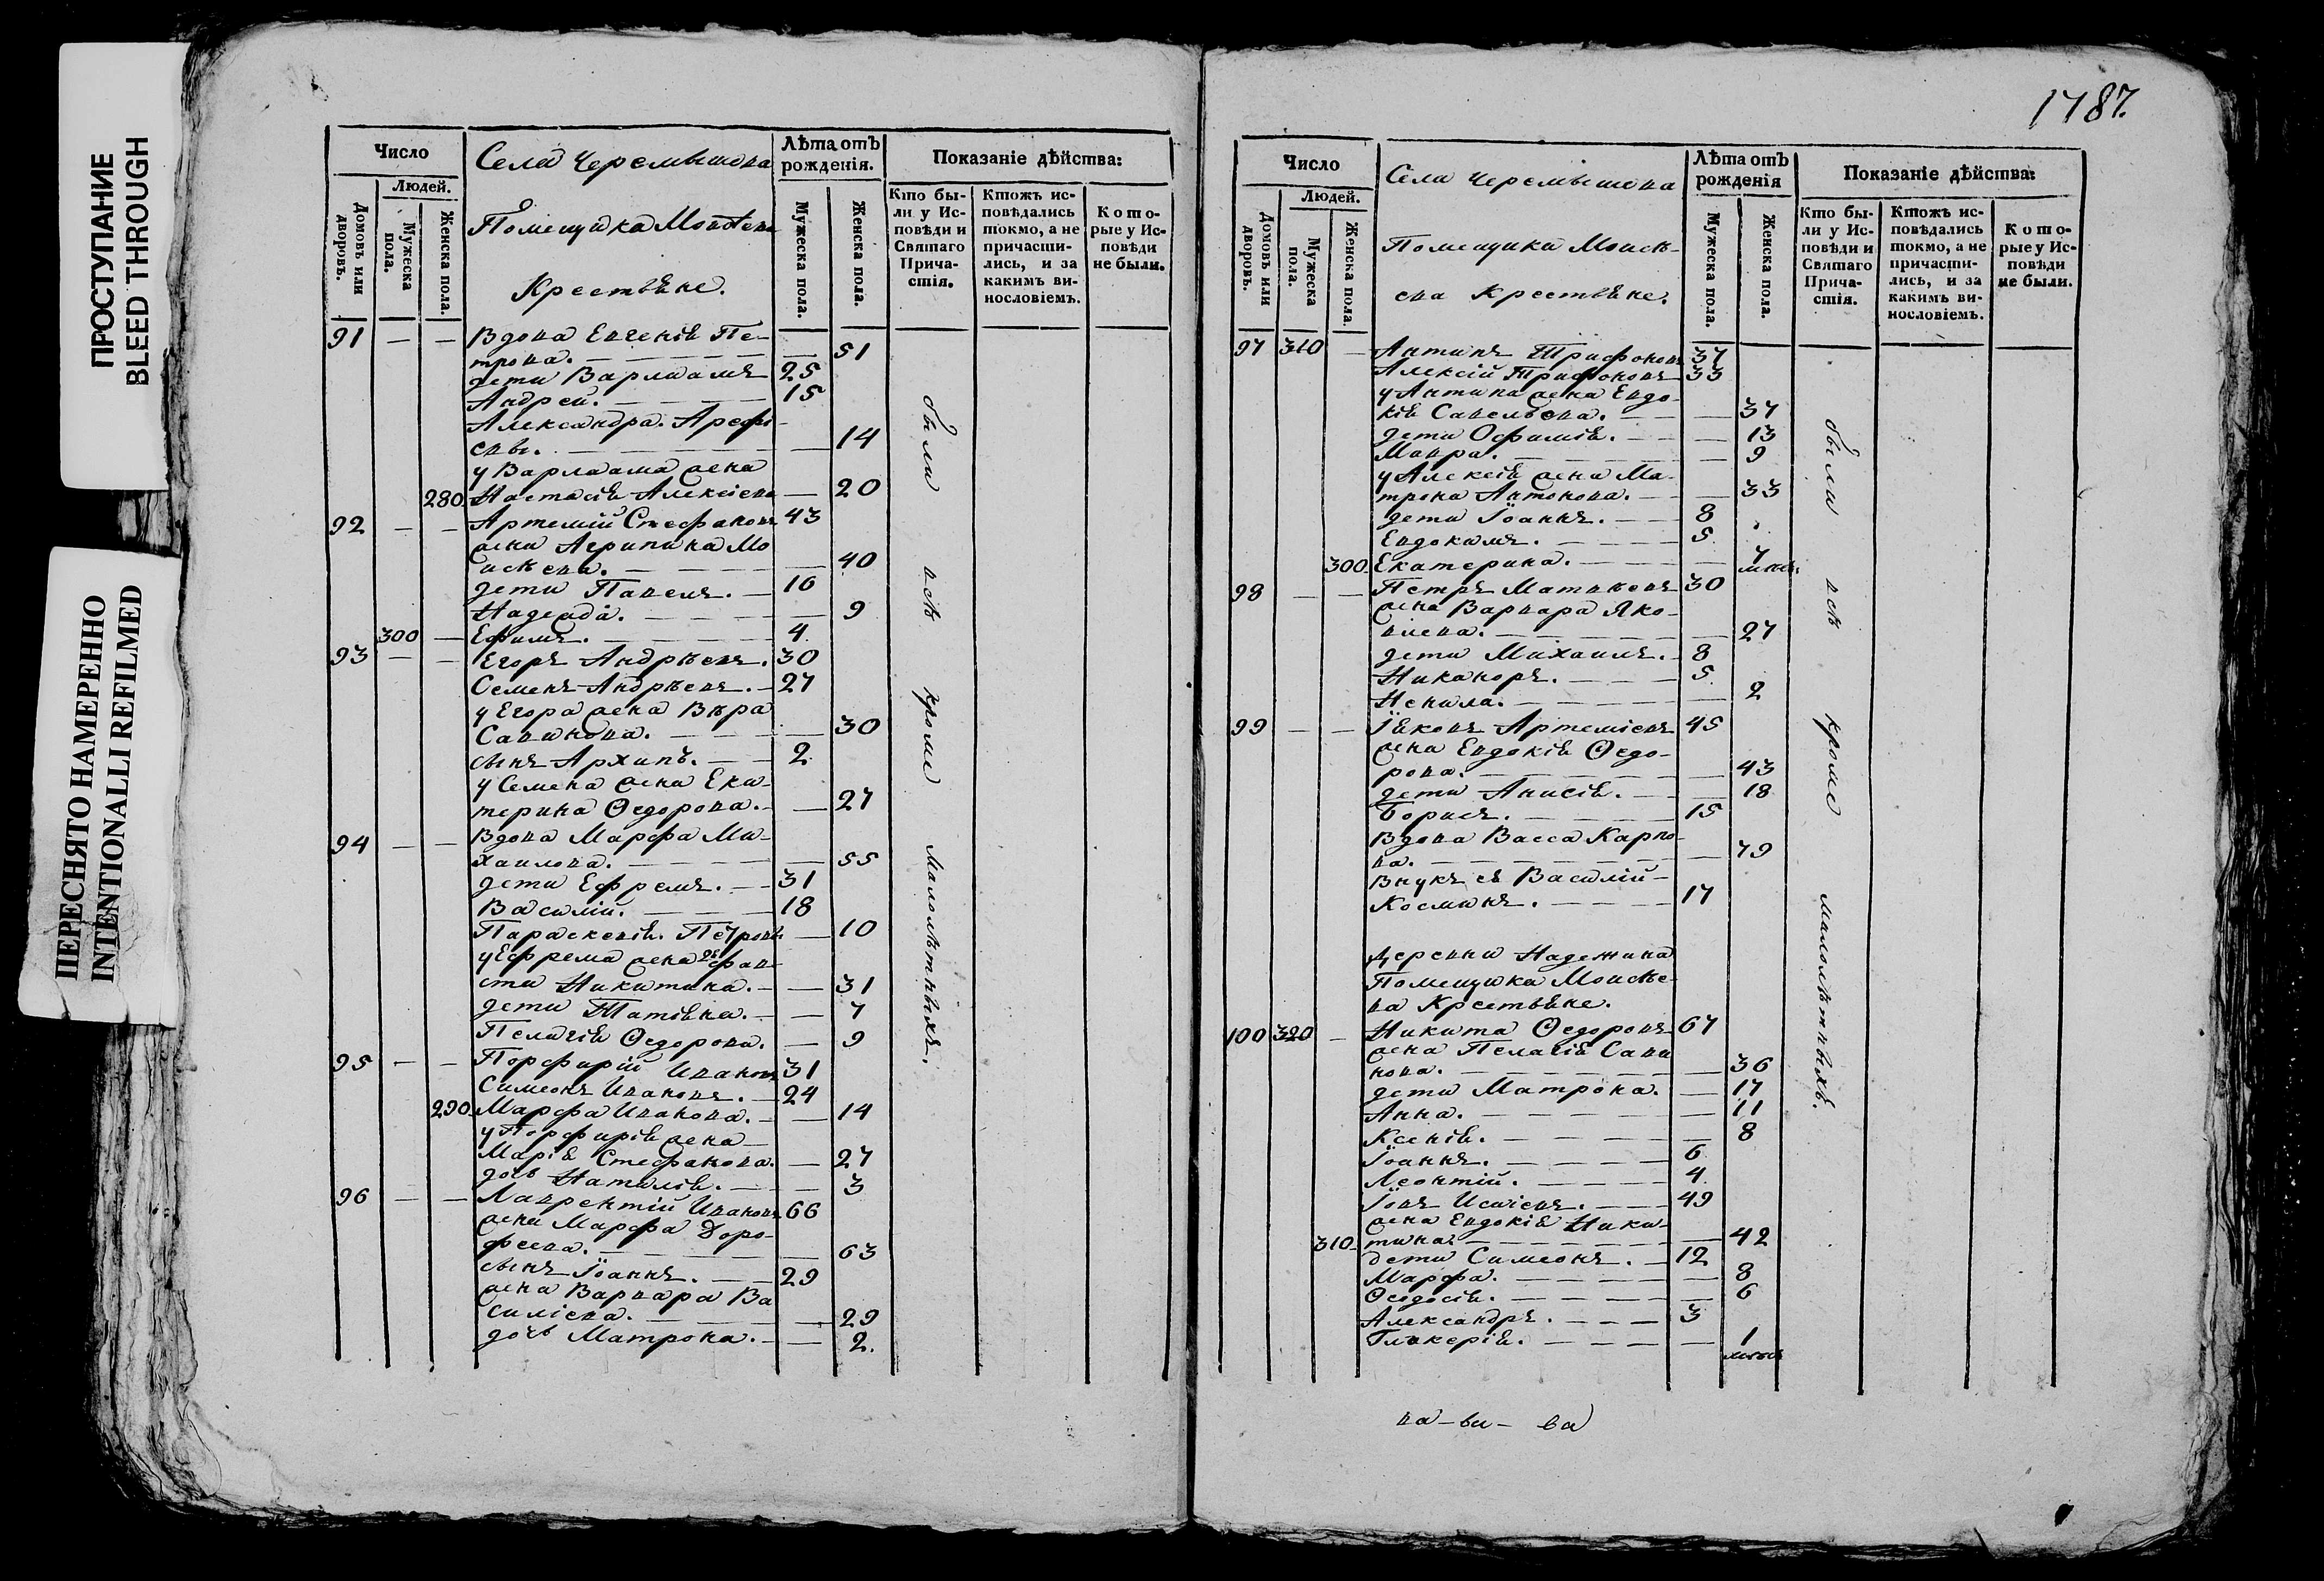 ПРОСТУПАНИЕ
BLEED THROUGH
ПЕРЕСНЯТО НАМЕРЕННО
INTENTIONALLI REFILMED
Число
Людей.
Домовъ или дворовъ.
Мужеска пола.
Женска пола.
Села Черемышова
Помещика Моисѣева
Крестьяне.
Лѣта отъ рожденія.
Мужеска пола.
Женска пола.
Показаніе дѣйства:
Кто бы-
ли у Ис-
повѣди и
Святаго
Прича-
стія.
Ктожъ ис-
повѣдались
токмо, а не
причасти-
лись, и за
какимъ ви-
нословіемъ.
Кото-
рые у Ис-
повѣди
не были.
91 — — Вдова Евгенія Пе-
трова. — 51
дети Варлаамъ 25
Андрей. 15
Александра. Арефі-
евы. — 14
у Варлаама жена
280. Настасія Алексіева — 20
92 — — Артемій Стефановъ 43
жена Агрипина Мо
исѣева. — 40
дети Павелъ. — 16
Надежда. — 9
300 — Ефимъ. 4
93 — — Егоръ Андрѣевъ. 30
Семенъ Андрѣевъ. — 27
у Егора жена Вѣра
Савинова. — 30
сынъ Архипъ. — 2
у Семена жена Ека-
терина Ѳедорова. — 27
94 — — Вдова Марфа Ми-
хаилова. — 55
дети Ефремъ. — 31
Василій. — 18
Параскевія. Петровы — 10
у Ефрема жена Фав-
ста Никитина. — 31
дети Татіана. — 7
Пелагія Ѳедорова. — 9
95 — — Порфирій Ивановъ 31
Симеонъ Ивановъ. — 24
290. Марфа Иванова. — 14
у Порфирія жена
Марія Стефанова. — 27
дочь Наталія. — 3
96 — — Лаврентій Ивановъ 66
жена Марфа Доро-
феева. — 63
сынъ Іоаннъ. — 29
жена Варвара Ва
силіева. — 29
дочь Матрона. — 2.
были всѣ кроме малолѣтныхъ.
1787.
Число
Людей.
Домовъ или дворовъ.
Мужеска пола.
Женска пола.
Села Черемышова
Помещика Моисѣ-
ева Крестьяне.
Лѣта отъ рожденія
Мужеска пола.
Женска пола.
Показаніе дѣйства:
Кто бы-
ли у Ис-
повѣди и
Святаго
Прича-
стія.
Ктожъ ис-
повѣдались
токмо, а не
причасти-
лись, и за
какимъ ви-
нословіемъ.
Кото-
рые у Ис-
повѣди
не были.
97 310 — Антипъ Трифоновъ 37
Алексій Трифоновъ 33
у Антипа жена Евдо-
кія Савельева. — 37
дети Офимія. — 13
Мавра. — 9
у Алексія жена Ма-
трона Антонова. — 33
дети Іоаннъ. — 8
Евдокимъ. — 5
300. Екатерина. —
98 — — Петръ Матвѣевъ 30
жена Варвара Яко-
влева. — 27
дети Михаилъ. — 8
Никаноръ. — 5
Ненила. — 2
99 — — Іяковъ Артеміевъ 45
жена Евдокія Ѳедо-
рова. — 43
дети Анисія. — 18
Борисъ. — 15
Вдова Васса Карпо-
ва. — 79
Внукъ ея Василій
Косминъ. — 17
Деревни Надежина
Помещика Моисѣе-
ва Крестьяне.
100 320 — Никита Ѳедоровъ 67
жена Пелагія Сави
нова. — 36
дети Матрона. — 17
Анна. — 11
Ксенія. — 8
Іоаннъ. — 6
Леонтій. — 4
Іовъ Исаіевъ. — 49
жена Евдокія Ники-
310. тина. — 42
дети Симеонъ. — 12
Марфа. — 8
Ѳеодосія. — 6
Александръ. — 3
Гликерія. — 1
были всѣ кроме малолѣтныхъ.